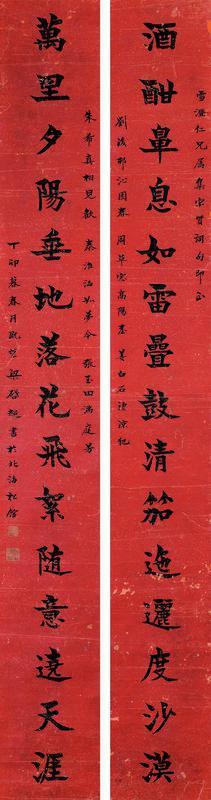 雪澄仁兄属集宋賢詞句即正
酒酣鼻息如雷疊鼓清笳迤邐度沙漠
劉後邨沁園春 周草窗高陽臺 姜白石淒涼犯
朱希真相見歡 秦淮海如夢令 張玉田滿庭芳
萬里夕陽垂地落花飛絮随意遶天涯
丁卯暮春月既望梁啟超書於北海松館